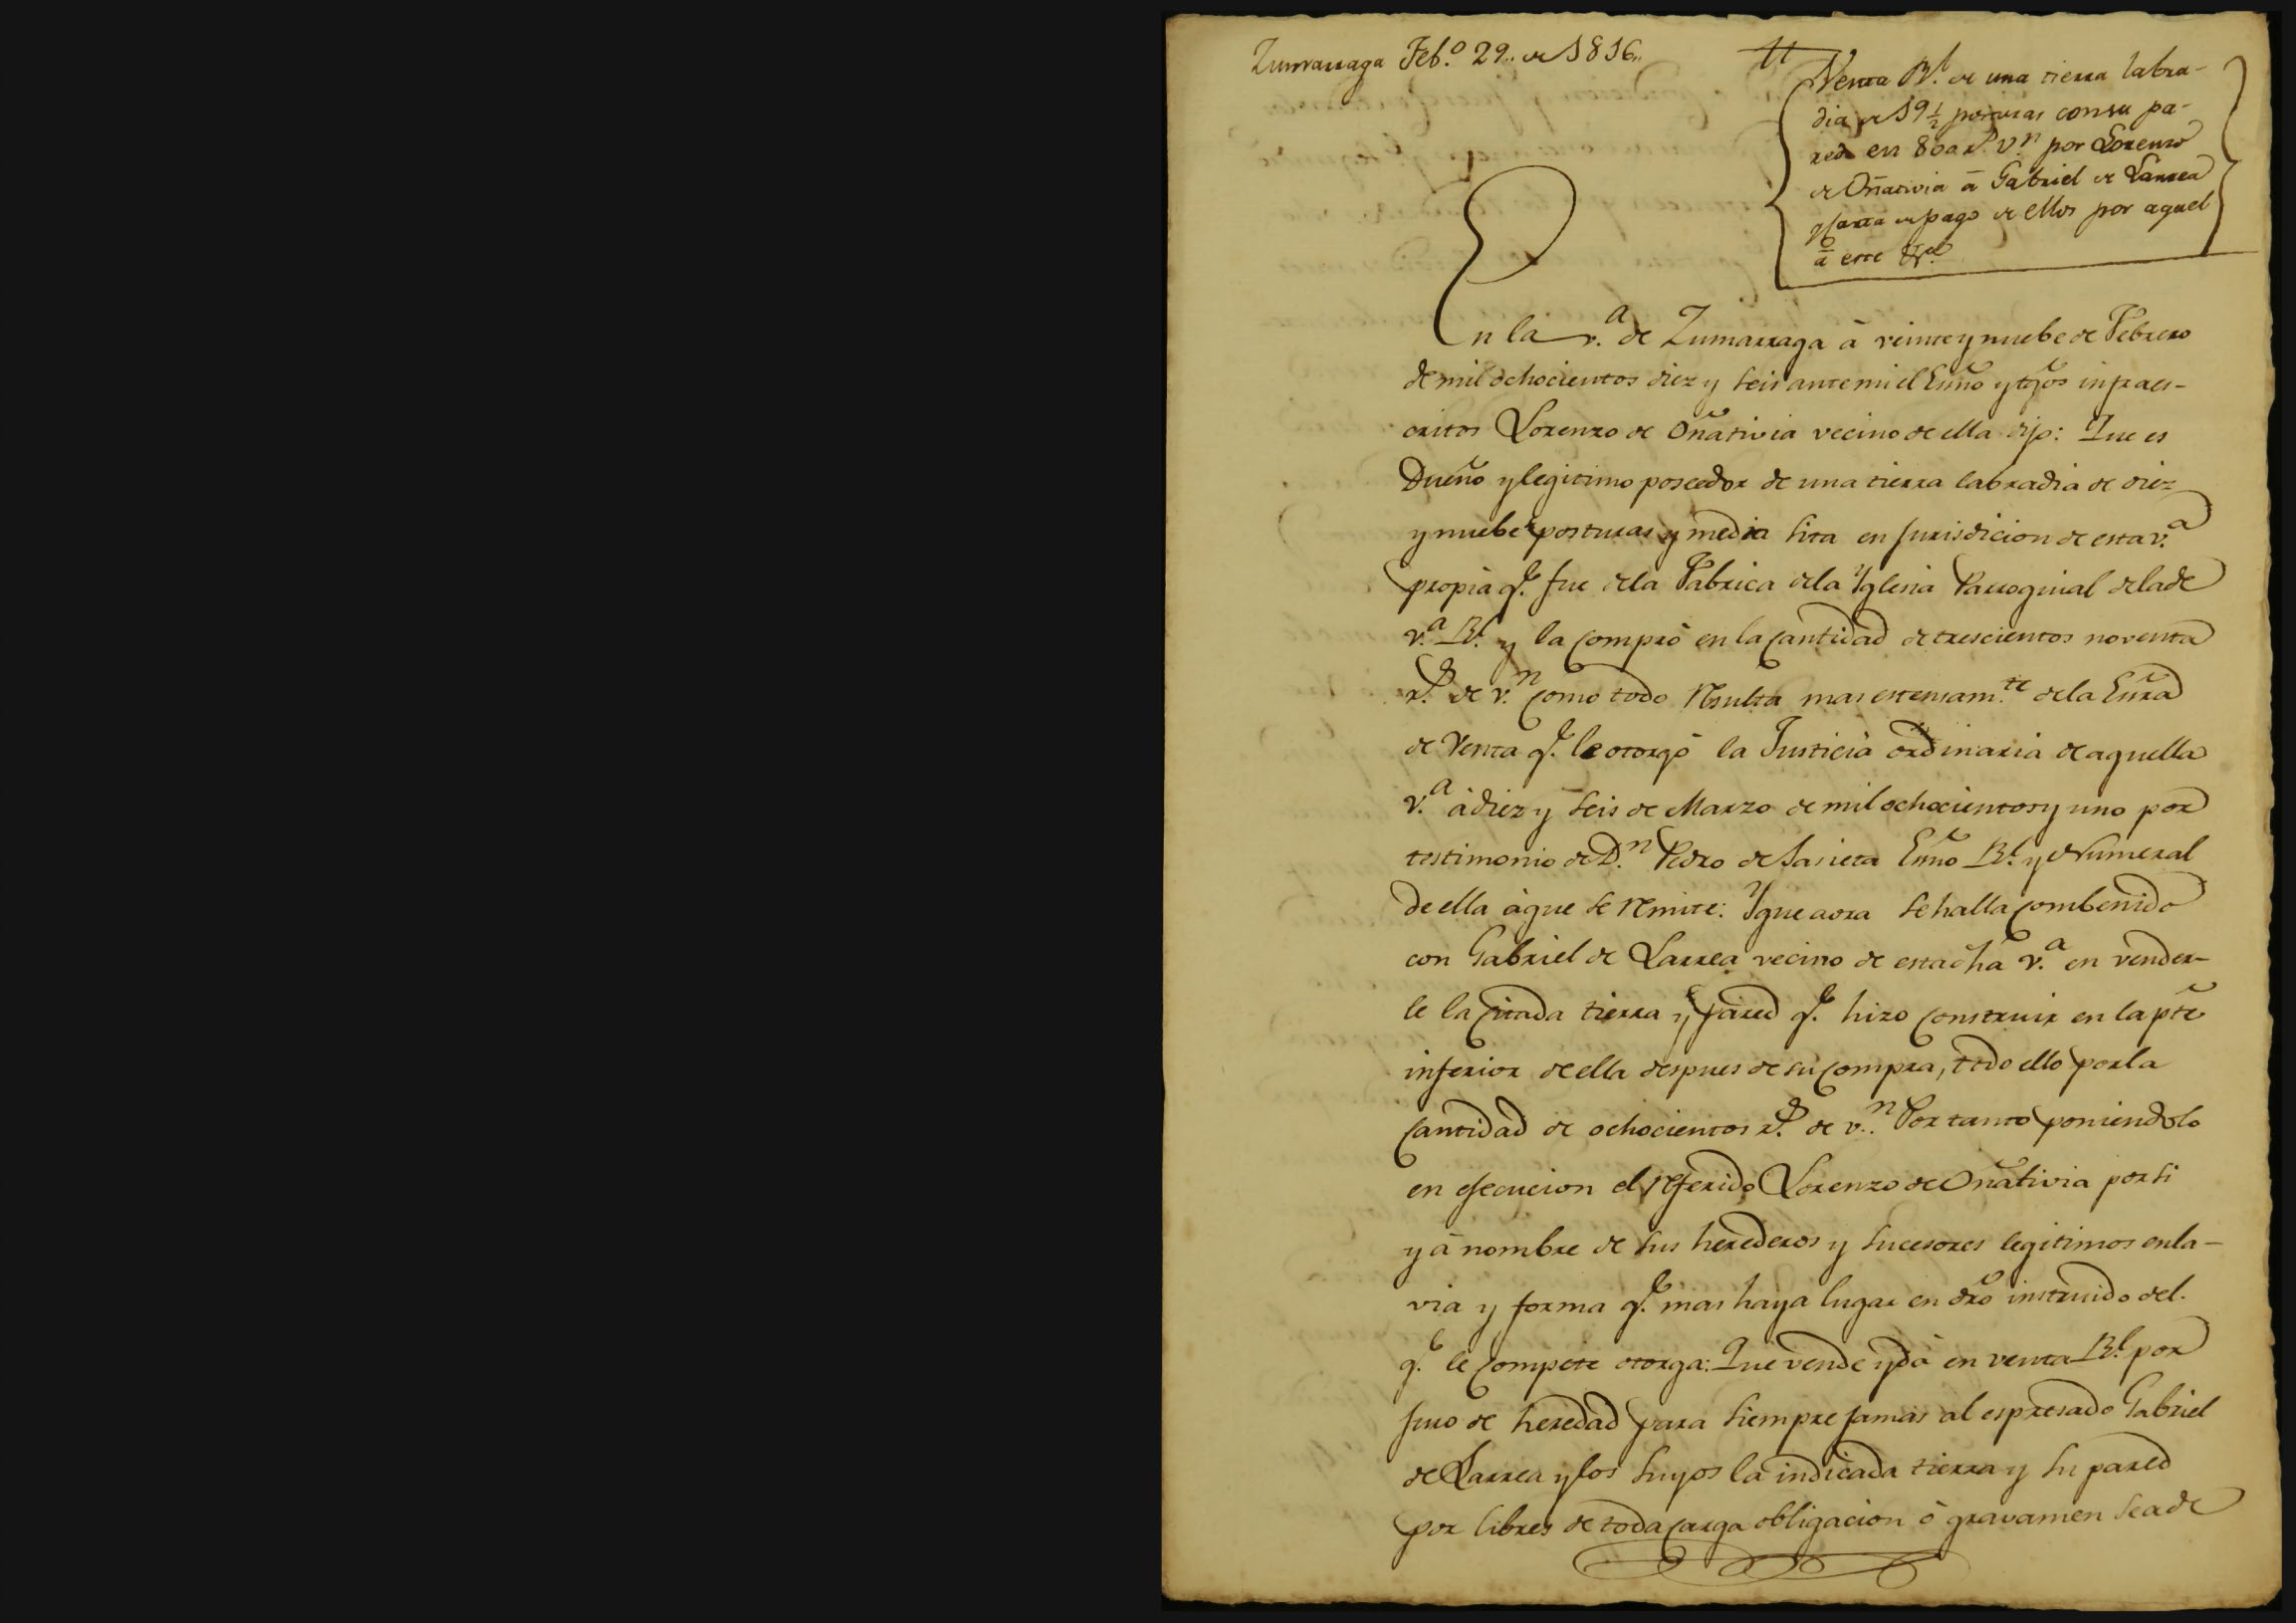 Zumarraga Feb.º 29.. de 1816..
Venta Rl. de una tierra labra-
dia de 19 1/2 posturas con su pa-
red en 800 rs. vn. por Lorenzo
de Oñativia ā Gabriel de Larrea
y carta de pago de ellos por aquel
ā este
En la v.ª de Zumarraga à veinte y nuebe de Febrero
de mil ochocientos diez y seis ante mi el Esño y tgõs infraes-
critos Lorenzo de Oñativia vecino de ella dijo: Que es
Dueño y legitimo poseedor de una tierra labradia de diez
y nuebe posturas y media sita en Jurisdicion de esta v.ª
propia q.e fue dela Fabrica dela Yglesia Parroquial dela de
v.ª Rl. y la comprò en la cantidad de trescientos noventa
rs. de v.n como todo resulta mas estensam.te dela Esñra
de Venta q.e le otorgò la Justicia ordinaria de aquella
v.ª à diez y seis de Marzo de mil ochocientos y uno por
testimonio de D.n Pedro de Sasieta Esño Rl. y Numeral
de ella àque se remite: Yque aora se halla combenido
con Gabriel de Larrea vecino de esta dhã v.ª en vender-
le la citada tierra y pared q.e hizo construir en la ptẽ
inferior de ella despues de su compra, todo ello por la
cantidad de ochocientos rs. de v.n Por tanto poniendolo
en ejecucion el referido Lorenzo de Oñativia por si
y à nombre de sus herederos y sucesores legitimos en la-
via y forma q.e mas haya lugar en drõ instruido del.
q.e le compete otorga: Que vende y dà en venta Rl. por
juro de heredad para siempre jamas al espresado Gabriel
de Larrea y los suyos la indicada tierra y su pared
por libres de toda carga obligacion ò gravamen sea de